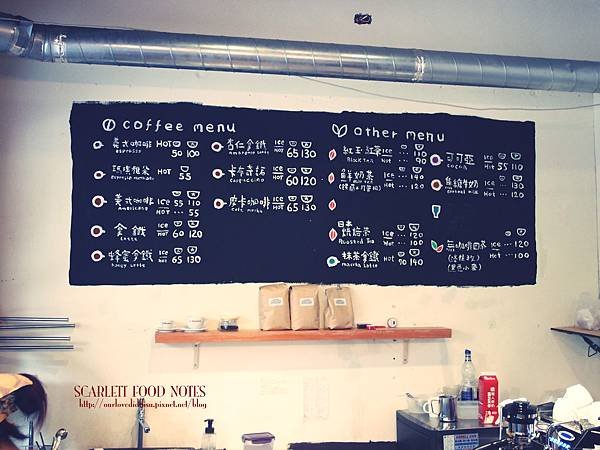 coffee menu
義式咖啡 HOT
espresso 50 100
瑪琪雅朵 HOT 55
美式咖啡 ICE 55 110
Americano HOT 55
拿鐵 ICE
Latte HOT 60 120
蜂蜜拿鐵 ICE
Honey Latte HOT 65 130
杏仁拿鐵 ICE
HOT 65 130
卡布奇諾 ICE
Cappuccino HOT 60 120
摩卡咖啡 ICE
HOT 65 130
other menu
紅玉紅茶 ICE ... 110
Black Tea HOT ... 90
鮮奶茶 ICE ... 140
HOT ... 120
日本
焙焙茶 ICE ... 120
Roasted Tea HOT ... 100
抹茶拿鐵 ICE
Matcha Latte HOT 90 140
可可亞 ICE
COCOA HOT 55 110
焦糖牛奶 ICE ... 130
HOT ... 120
無咖啡因茶 ICE ... 120
HOT ... 100
SCARLETT FOOD NOTES